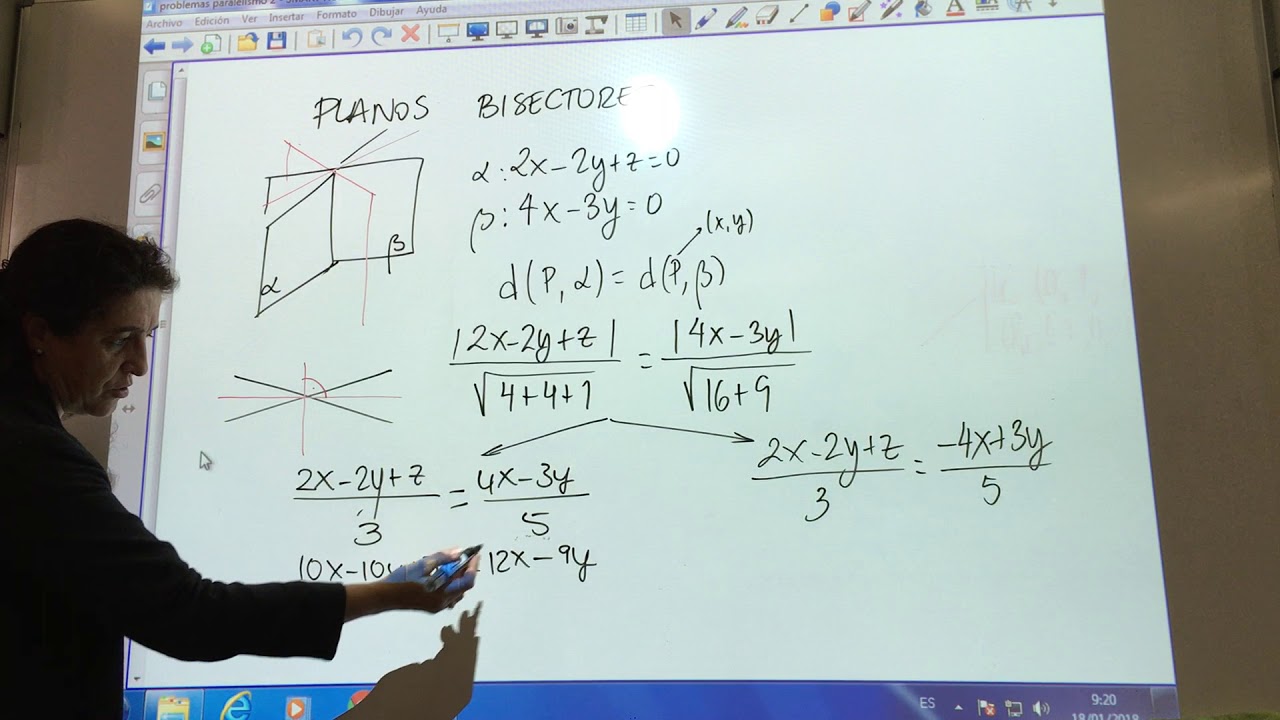 problemas paralelismo 2 - SMART
Archivo Edición Ver Insertar Formato Dibujar Ayuda
PLANOS BISECTORE
α: 2x-2y+z=0
β: 4x-3y=0
(x,y)
d(P,α) = d(P,β)
α
β
|2x-2y+z| / √4+4+1 = |4x-3y| / √16+9
2x-2y+z / 3 = 4x-3y / 5
2x-2y+z / 3 = -4x+3y / 5
10x-10y 12x-9y
ES
9:20
18/01/2018